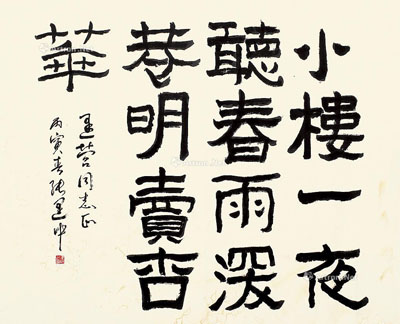 小樓一夜
聽春雨深
巷明賣杏
華
同志正
丙寅春張